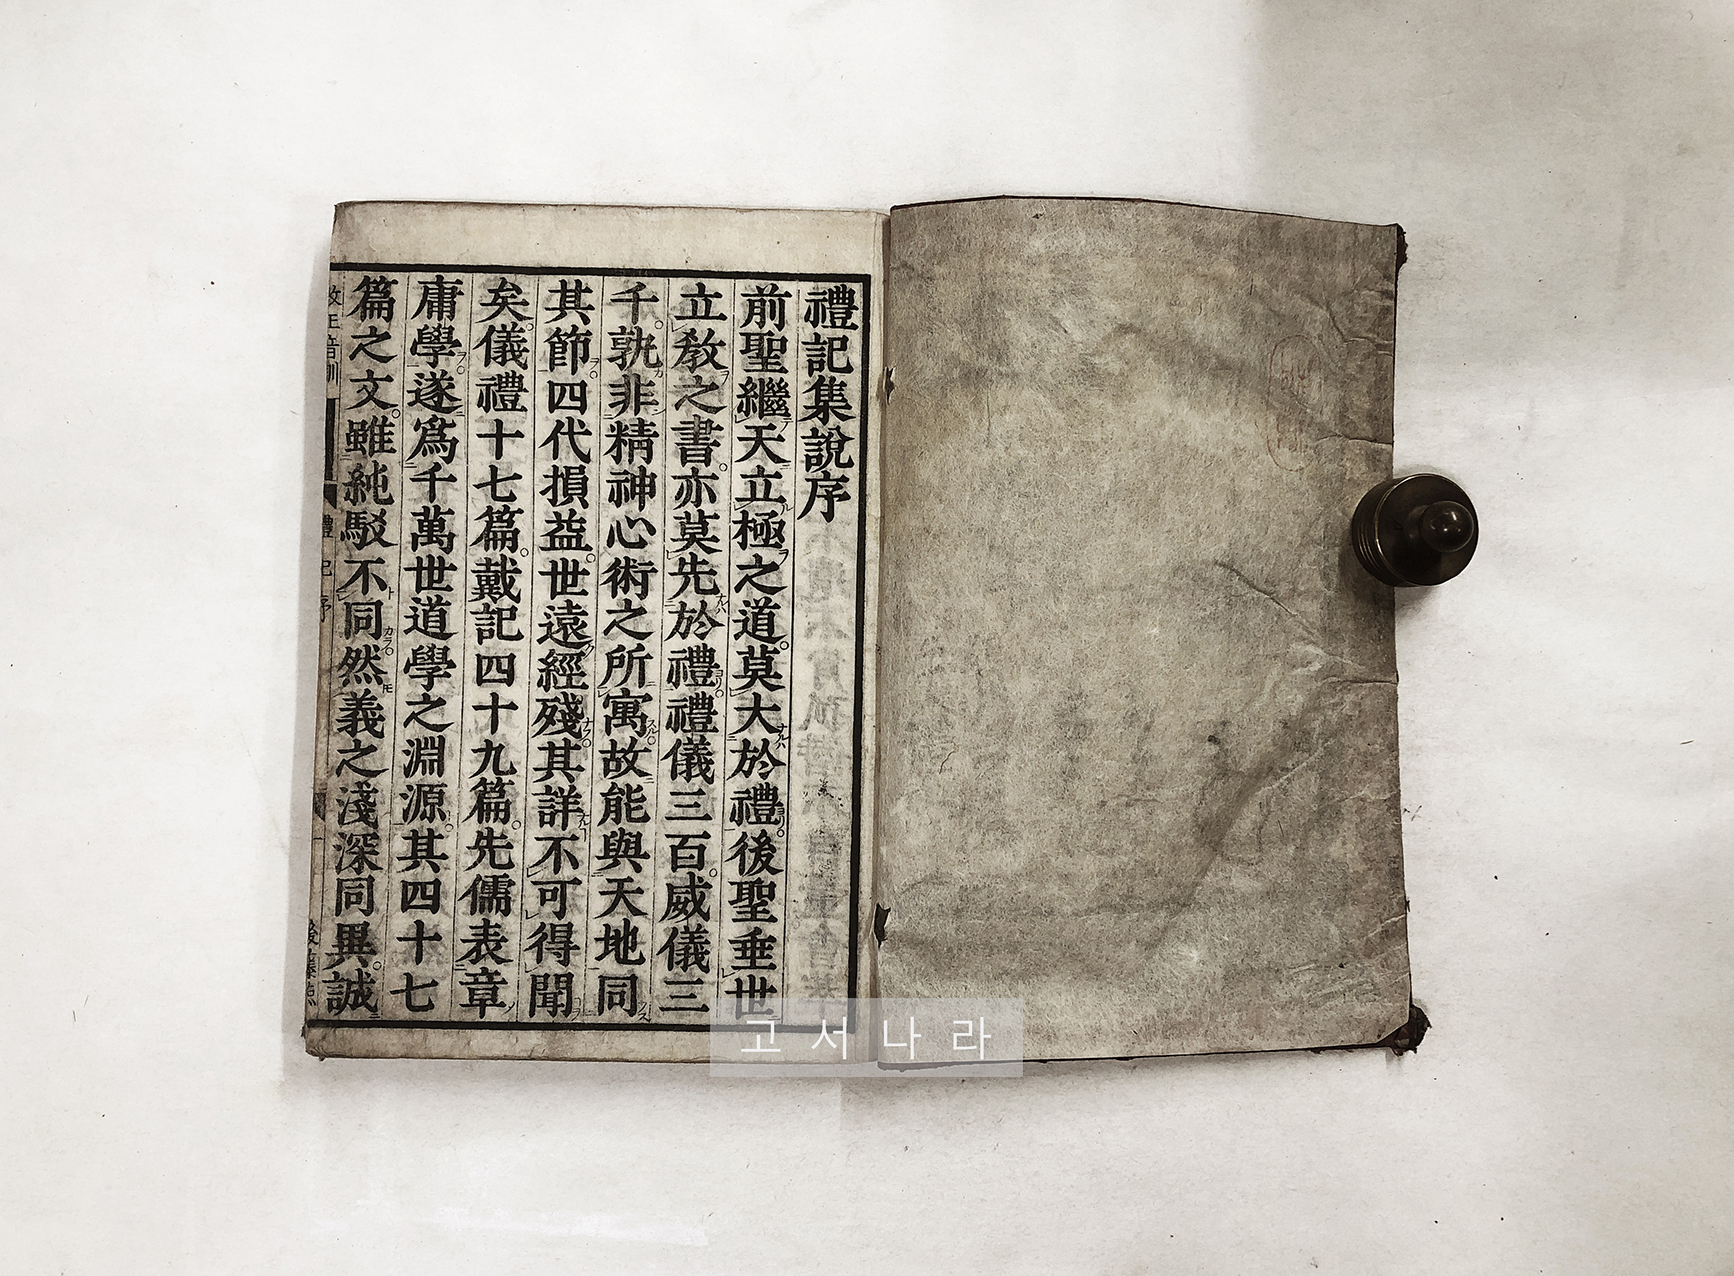 禮記集說序
前聖繼天立極之道莫大於禮後聖垂世
立教之書亦莫先於禮禮儀三百威儀三
千孰非精神心術之所寓故能與天地同
其節四代損益世遠經殘其詳不可得聞
矣儀禮十七篇戴記四十九篇先儒表章
庸學遂爲千萬世道學之淵源其四十七
篇之文雖純駁不同然義之淺深同異誠
禮記序
고서나라